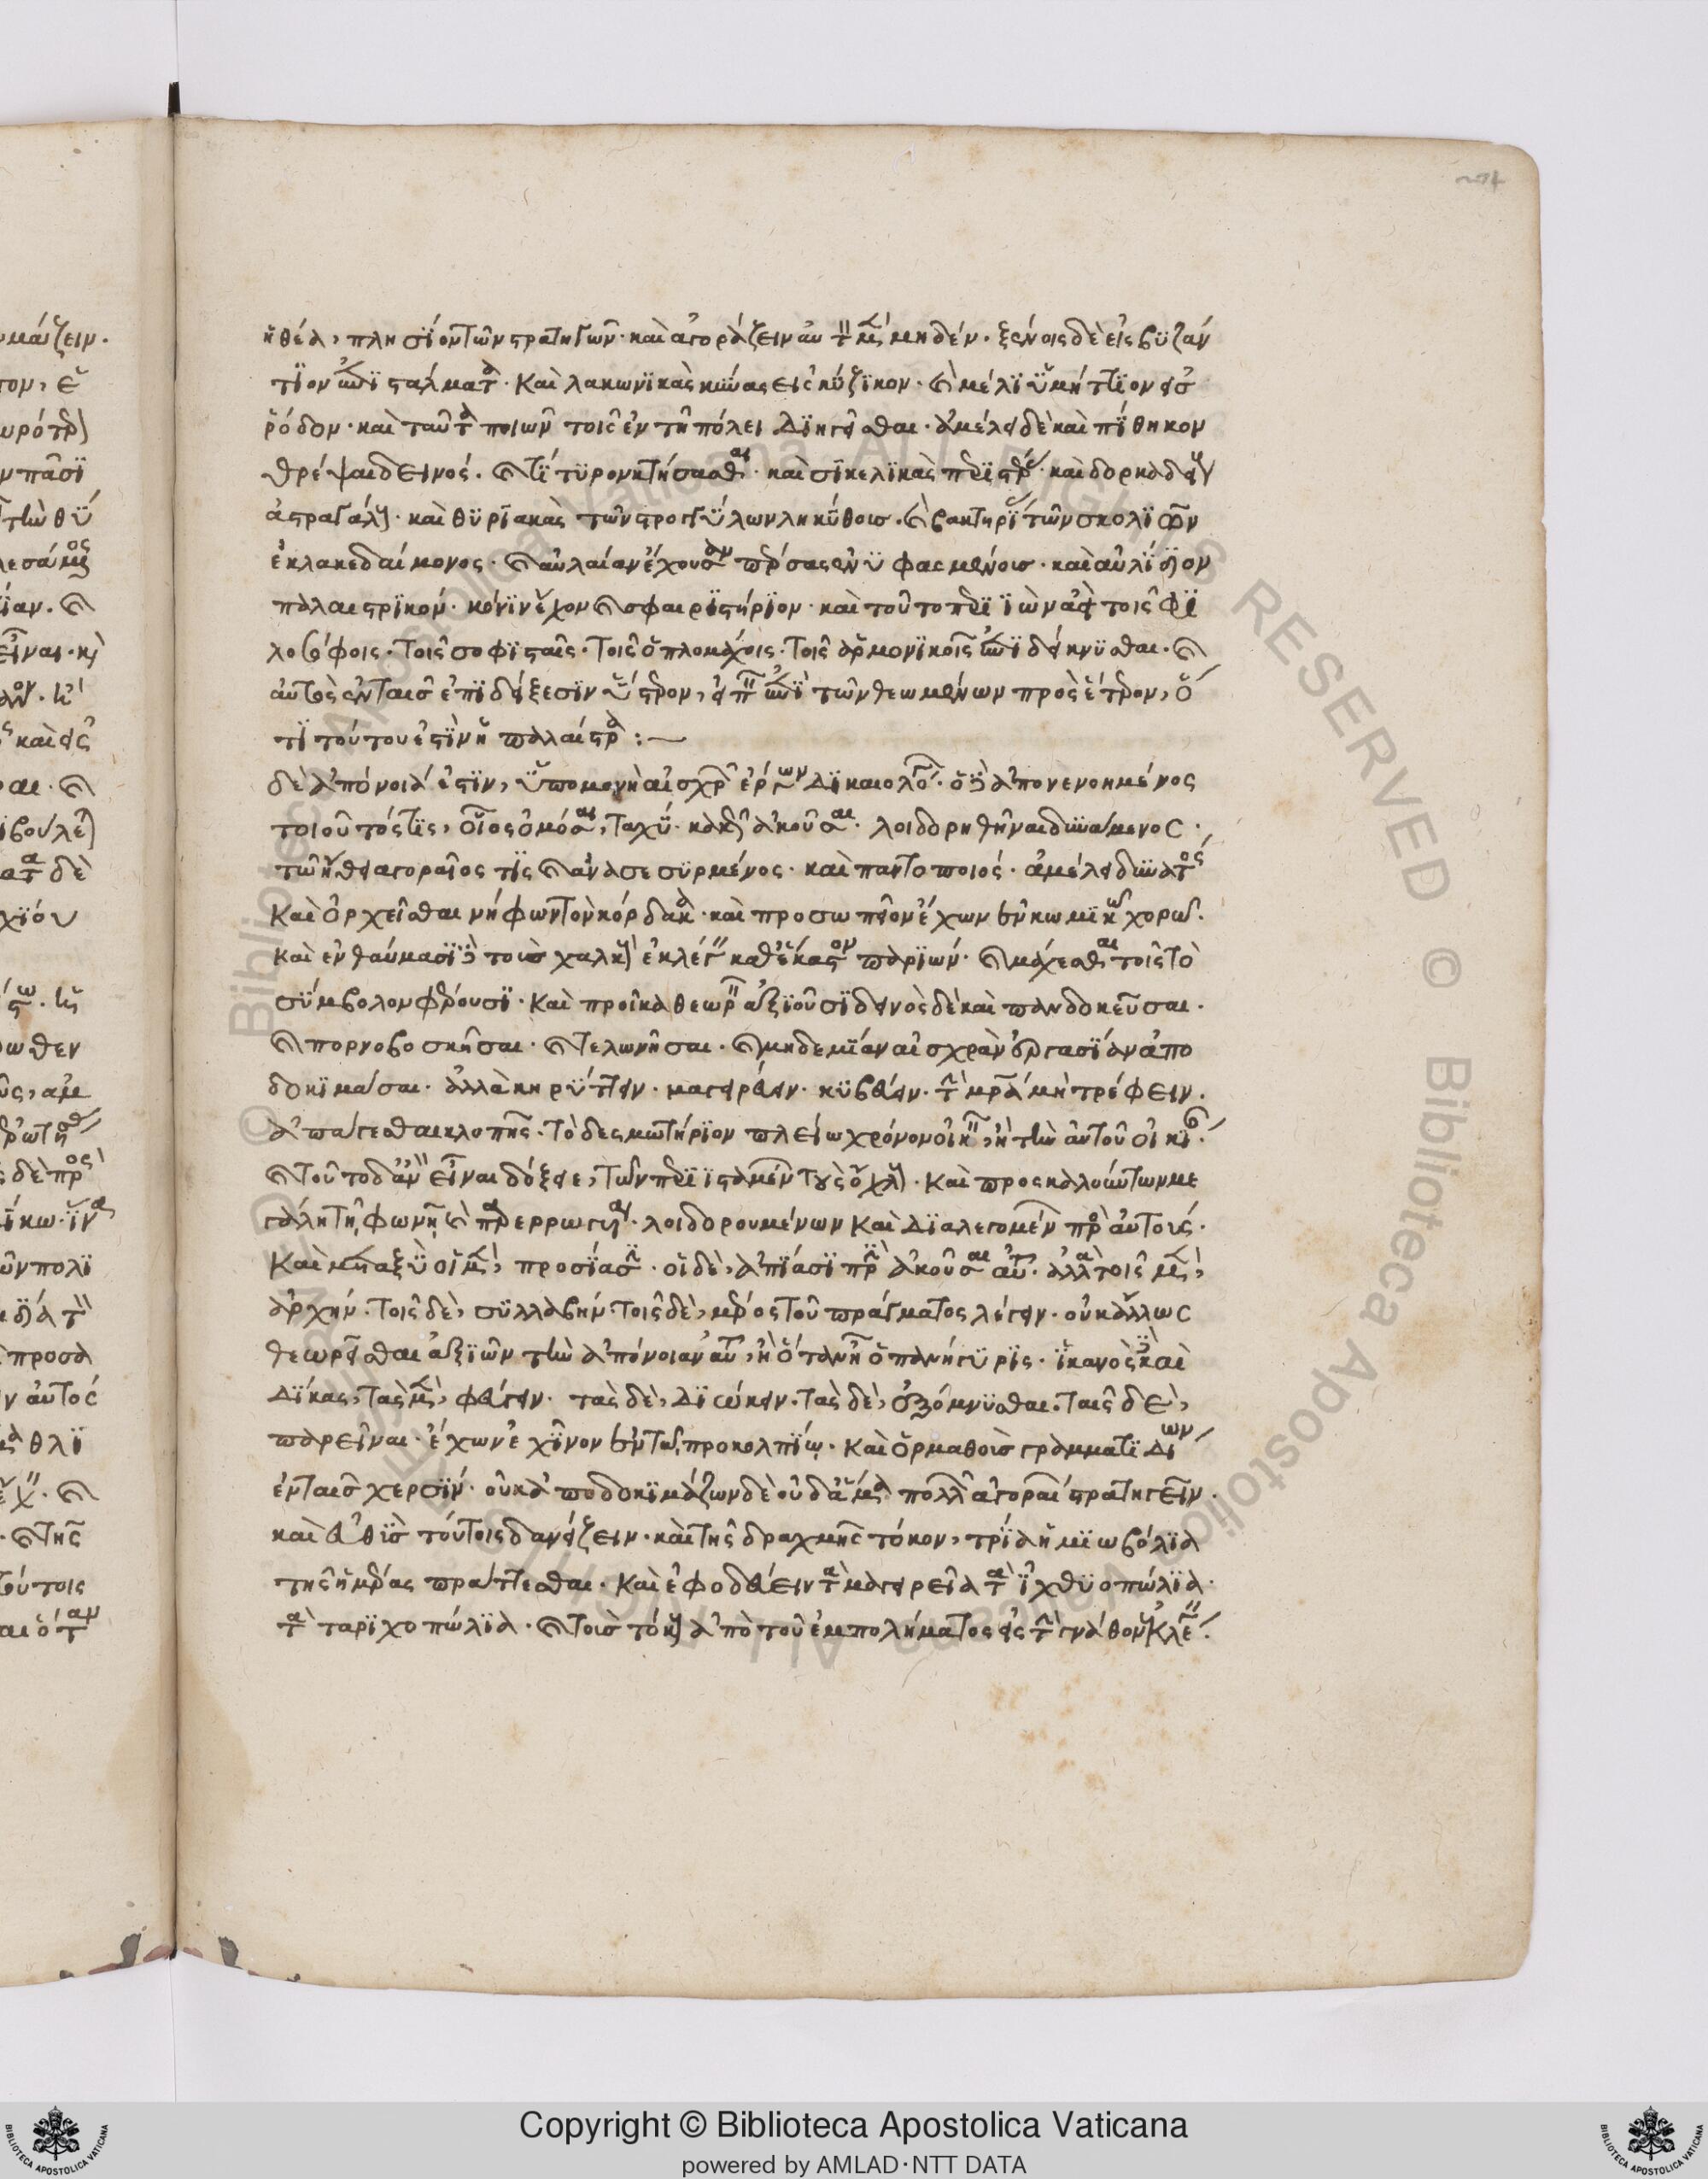 ἢ θέα, πλησίον τῶν στρατηγῶν· καὶ ἀγοράζειν αὐτῷ μὲν μηδέν· ξένοις δὲ εἰς βυζάν
τιον ἐπιστάλματα· καὶ λακωνικὰς κύνας εἰς κύζικον· καὶ μέλι ὑμήττιον εἰς
ῥόδον· καὶ ταῦτα ποιῶν τοῖς ἐν τῇ πόλει διηγεῖσθαι· ἀμέλει δὲ καὶ πίθηκον
θρέψαι δεινός· καὶ τίτυρον κτήσασθαι· καὶ σικελικὰς περιστεράς· καὶ δορκαδείους
ἀστραγάλους· καὶ θυριακὰς τῶν στρογγύλων ληκύθοις· καὶ βακτηρίας τῶν σκολιῶν
ἐκ λακεδαίμονος· καὶ αὐλαίαν ἔχουσαν πέρσας ἐνυφασμένοις· καὶ αὐλίδιον
παλαιστρικόν· κόνιν ἔχον καὶ σφαιριστήριον· καὶ τοῦτο περιϊὼν ἀεὶ τοῖς φι
λοσόφοις· τοῖς σοφισταῖς· τοῖς ὁπλομάχοις· τοῖς ἁρμονικοῖς ἐπιδείκνυσθαι· καὶ
αὐτὸς ἐν ταῖς ἐπιδείξεσιν ὕστερον, εἰπεῖν ἐπὶ τῶν θεωμένων πρὸς ἕτερον, ὅ
τι τούτου ἐστὶν ἡ παλαίστρα :—
δὲ ἀπόνοιά ἐστιν, ὑπομονὴ αἰσχρῶν ἔργων δικαιολόγος· ὁ δὲ ἀπονενοημένος
τοιοῦτός τις, οἷος ὀμόσαι, ταχύ· κακῶς ἀκοῦσαι· λοιδορηθῆναι δυνάμενος·
τῷ ἤθει ἀγοραῖός τις καὶ ἀνασεσυρμένος· καὶ παντοποιός· ἀμέλει δυνατὸς
καὶ ὀρχεῖσθαι νήφων τὸν κόρδακα· καὶ προσωπεῖον ἔχων ἐν κωμικῷ χορῷ·
καὶ ἐν θαύμασι δὲ τοὺς χαλκοῦς ἐκλέγειν καθ' ἕκαστον παριών· καὶ μάχεσθαι τοῖς τὸ
σύμβολον φέρουσι· καὶ προῖκα θεωρεῖν ἀξιοῦσι δεινὸς δὲ καὶ πανδοκεῦσαι·
καὶ πορνοβοσκῆσαι· καὶ τελωνῆσαι· καὶ μηδεμίαν αἰσχρὰν ἐργασίαν ἀπο
δοκιμάσαι· ἀλλὰ κηρύττειν· μαγειρεύειν· κυβεύειν· τὴν μητέρα μὴ τρέφειν·
ἀπάγεσθαι κλοπῆς· τὸ δεσμωτήριον πλείω χρόνον οἰκεῖν, ἢ τὴν αὑτοῦ οἰκίαν·
καὶ τοῦτο δ' ἂν εἶναι δόξειε, τῶν περιϊσταμένων τοὺς ὄχλους· καὶ προσκαλούντων με
γάλῃ τῇ φωνῇ καὶ παρερρωγυίᾳ· λοιδορουμένων καὶ διαλεγομένων πρὸς αὐτούς·
καὶ μεταξὺ οἱ μὲν, προσίασιν· οἱ δὲ, ἀπίασι πρὶν ἀκοῦσαι αὐτοῦ· ἀλλὰ τοῖς μὲν,
ἀρχήν· τοῖς δὲ, συλλαβήν· τοῖς δὲ, μέρος τοῦ πράγματος λέγειν· οὐκ ἄλλως
θεωρεῖσθαι ἀξιῶν τὴν ἀπόνοιαν αὐτοῦ, ἢ ὅταν ᾖ πανήγυρις· ἱκανὸς δὲ καὶ
δίκας, τὰς μὲν, φεύγειν· τὰς δὲ, διώκειν· τὰς δὲ, ἐξόμνυσθαι· ταῖς δὲ,
παρεῖναι· ἔχων ἐχῖνον ἐν τῷ προκολπίῳ· καὶ ὁρμαθοὺς γραμματιδίων
ἐν ταῖς χερσίν· οὐκ ἀποδοκιμάζων δὲ οὐδ' ἅμα πολλῶν ἀγοραίων στρατηγεῖν·
καὶ εὐθὺς τούτοις δανείζειν· καὶ τῆς δραχμῆς τόκον, τρία ἡμιωβόλια
τῆς ἡμέρας πράττεσθαι· καὶ ἐφοδεύειν τὰ μαγειρεῖα τὰ ἰχθυοπώλια·
τὰ ταριχοπώλια· καὶ τοὺς τόκους ἀπὸ τοῦ ἐμπολήματος εἰς τὴν γνάθον ἐκλέγειν·
Copyright © Biblioteca Apostolica Vaticana
powered by AMLAD·NTT DATA